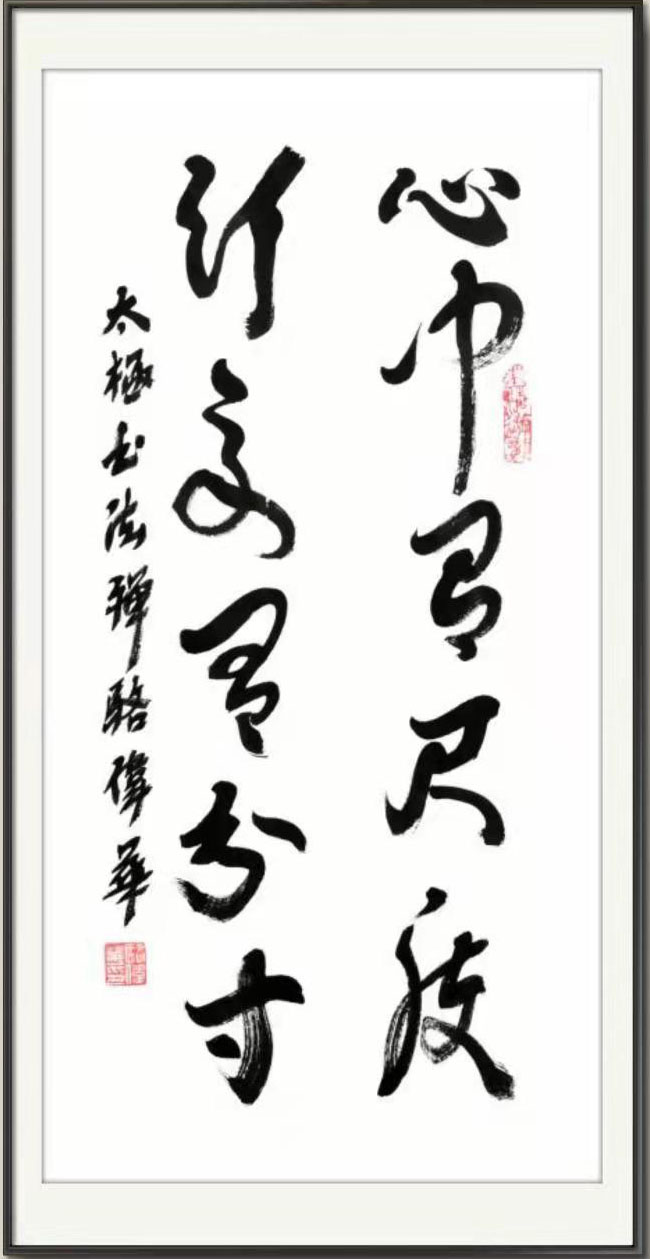 心中有尺度
行文有分寸
太極书法禪駱偉華